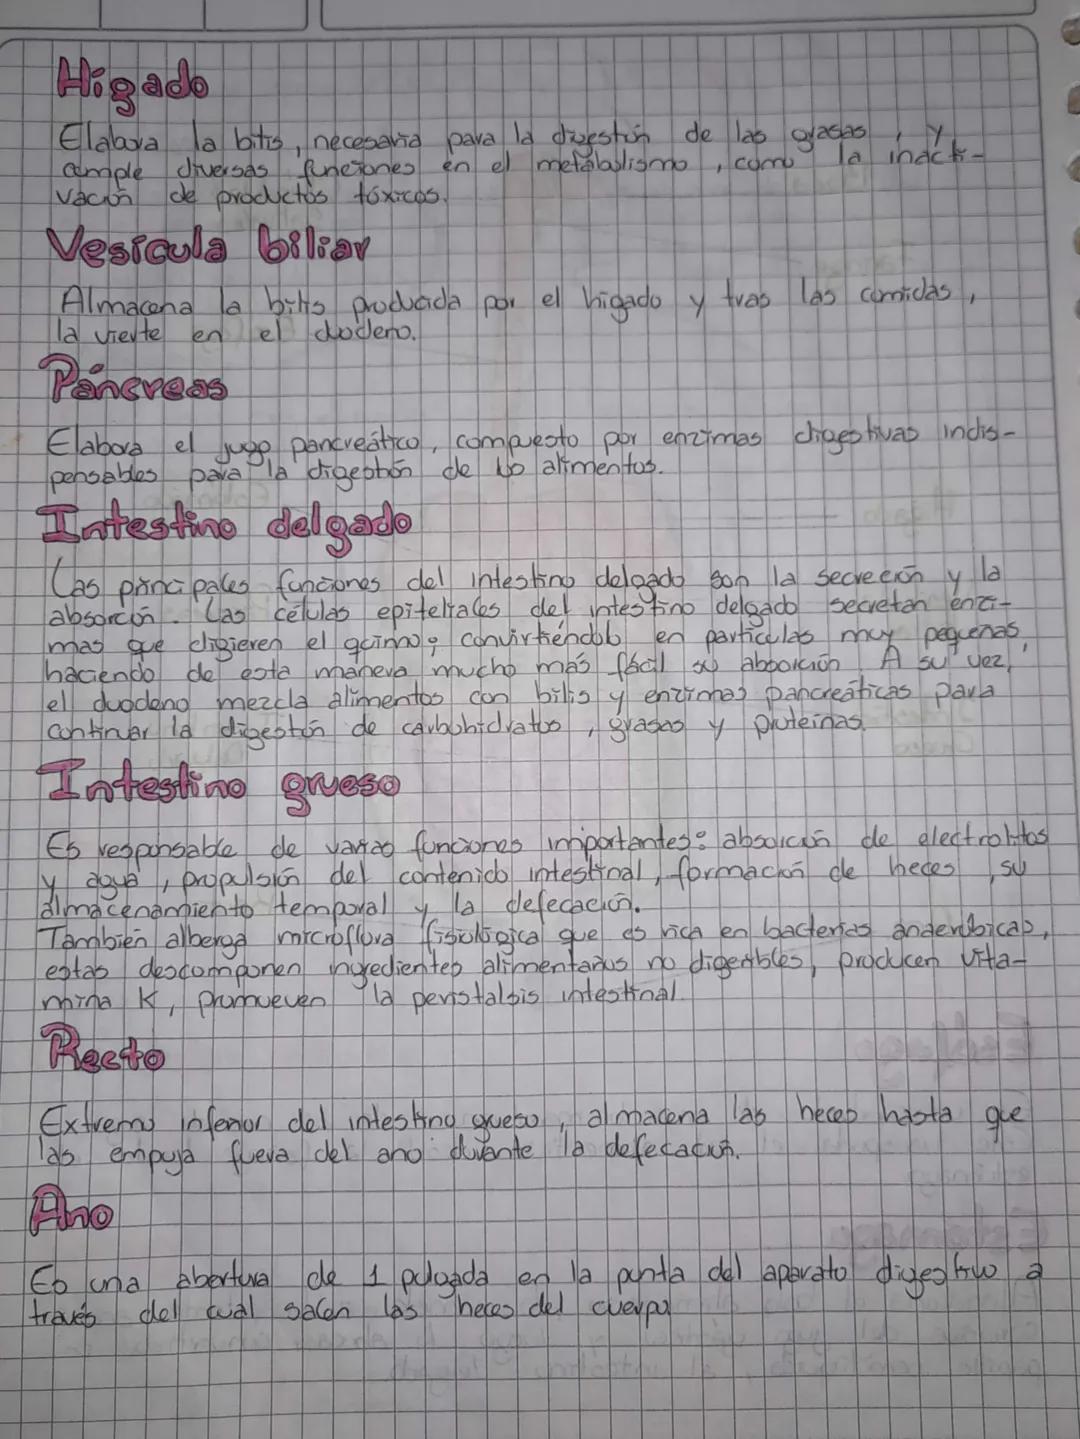 Higado
Elabora la bilis, necesaria para la digestión de las grasas, y
cumple diversas funciones en el metabolismo, como la inacti-
vación de productos tóxicos.
Vesícula biliar
Almacena la bilis producida por el higado y tras las comidas,
la vierte en el duodeno.
Páncreas
Elabora el jugo pancreático, compuesto por enzimas digestivas indis-
pensables para la digestión de los alimentos.
Intestino delgado
Las principales funciones del intestino delgado son la secreción y la
absorción. Las células epiteliales del intestino delgado secretan enzi-
mas que digieren el quimo, convirtiéndolo en partículas muy pequeñas,
haciendo de esta manera mucho más fácil su absorción. A su vez,
el duodeno mezcla alimentos con bilis y enzimas pancreáticas para
continuar la digestión de carbohidratos, grasas y proteinas.
Intestino grueso
Es responsable de varias funciones importantes: absorción de electrolitos
y agua, propulsión del contenido intestinal, formación de heces, su
almacenamiento temporal y la defecación.
También alberga microflora fisiológica que es rica en bacterias anaeróbicas,
estas descomponen ingredientes alimentarios no digeribles, producen vita-
mina K, promueven la peristalsis intestinal.
Recto
Extremo inferior del intestino grueso, almacena las heces hasta que
las empuja fuera del ano durante la defecación.
Ano
Es una abertura de 1 pulgada en la punta del aparato digestivo a
través del cual salen las heces del cuerpo